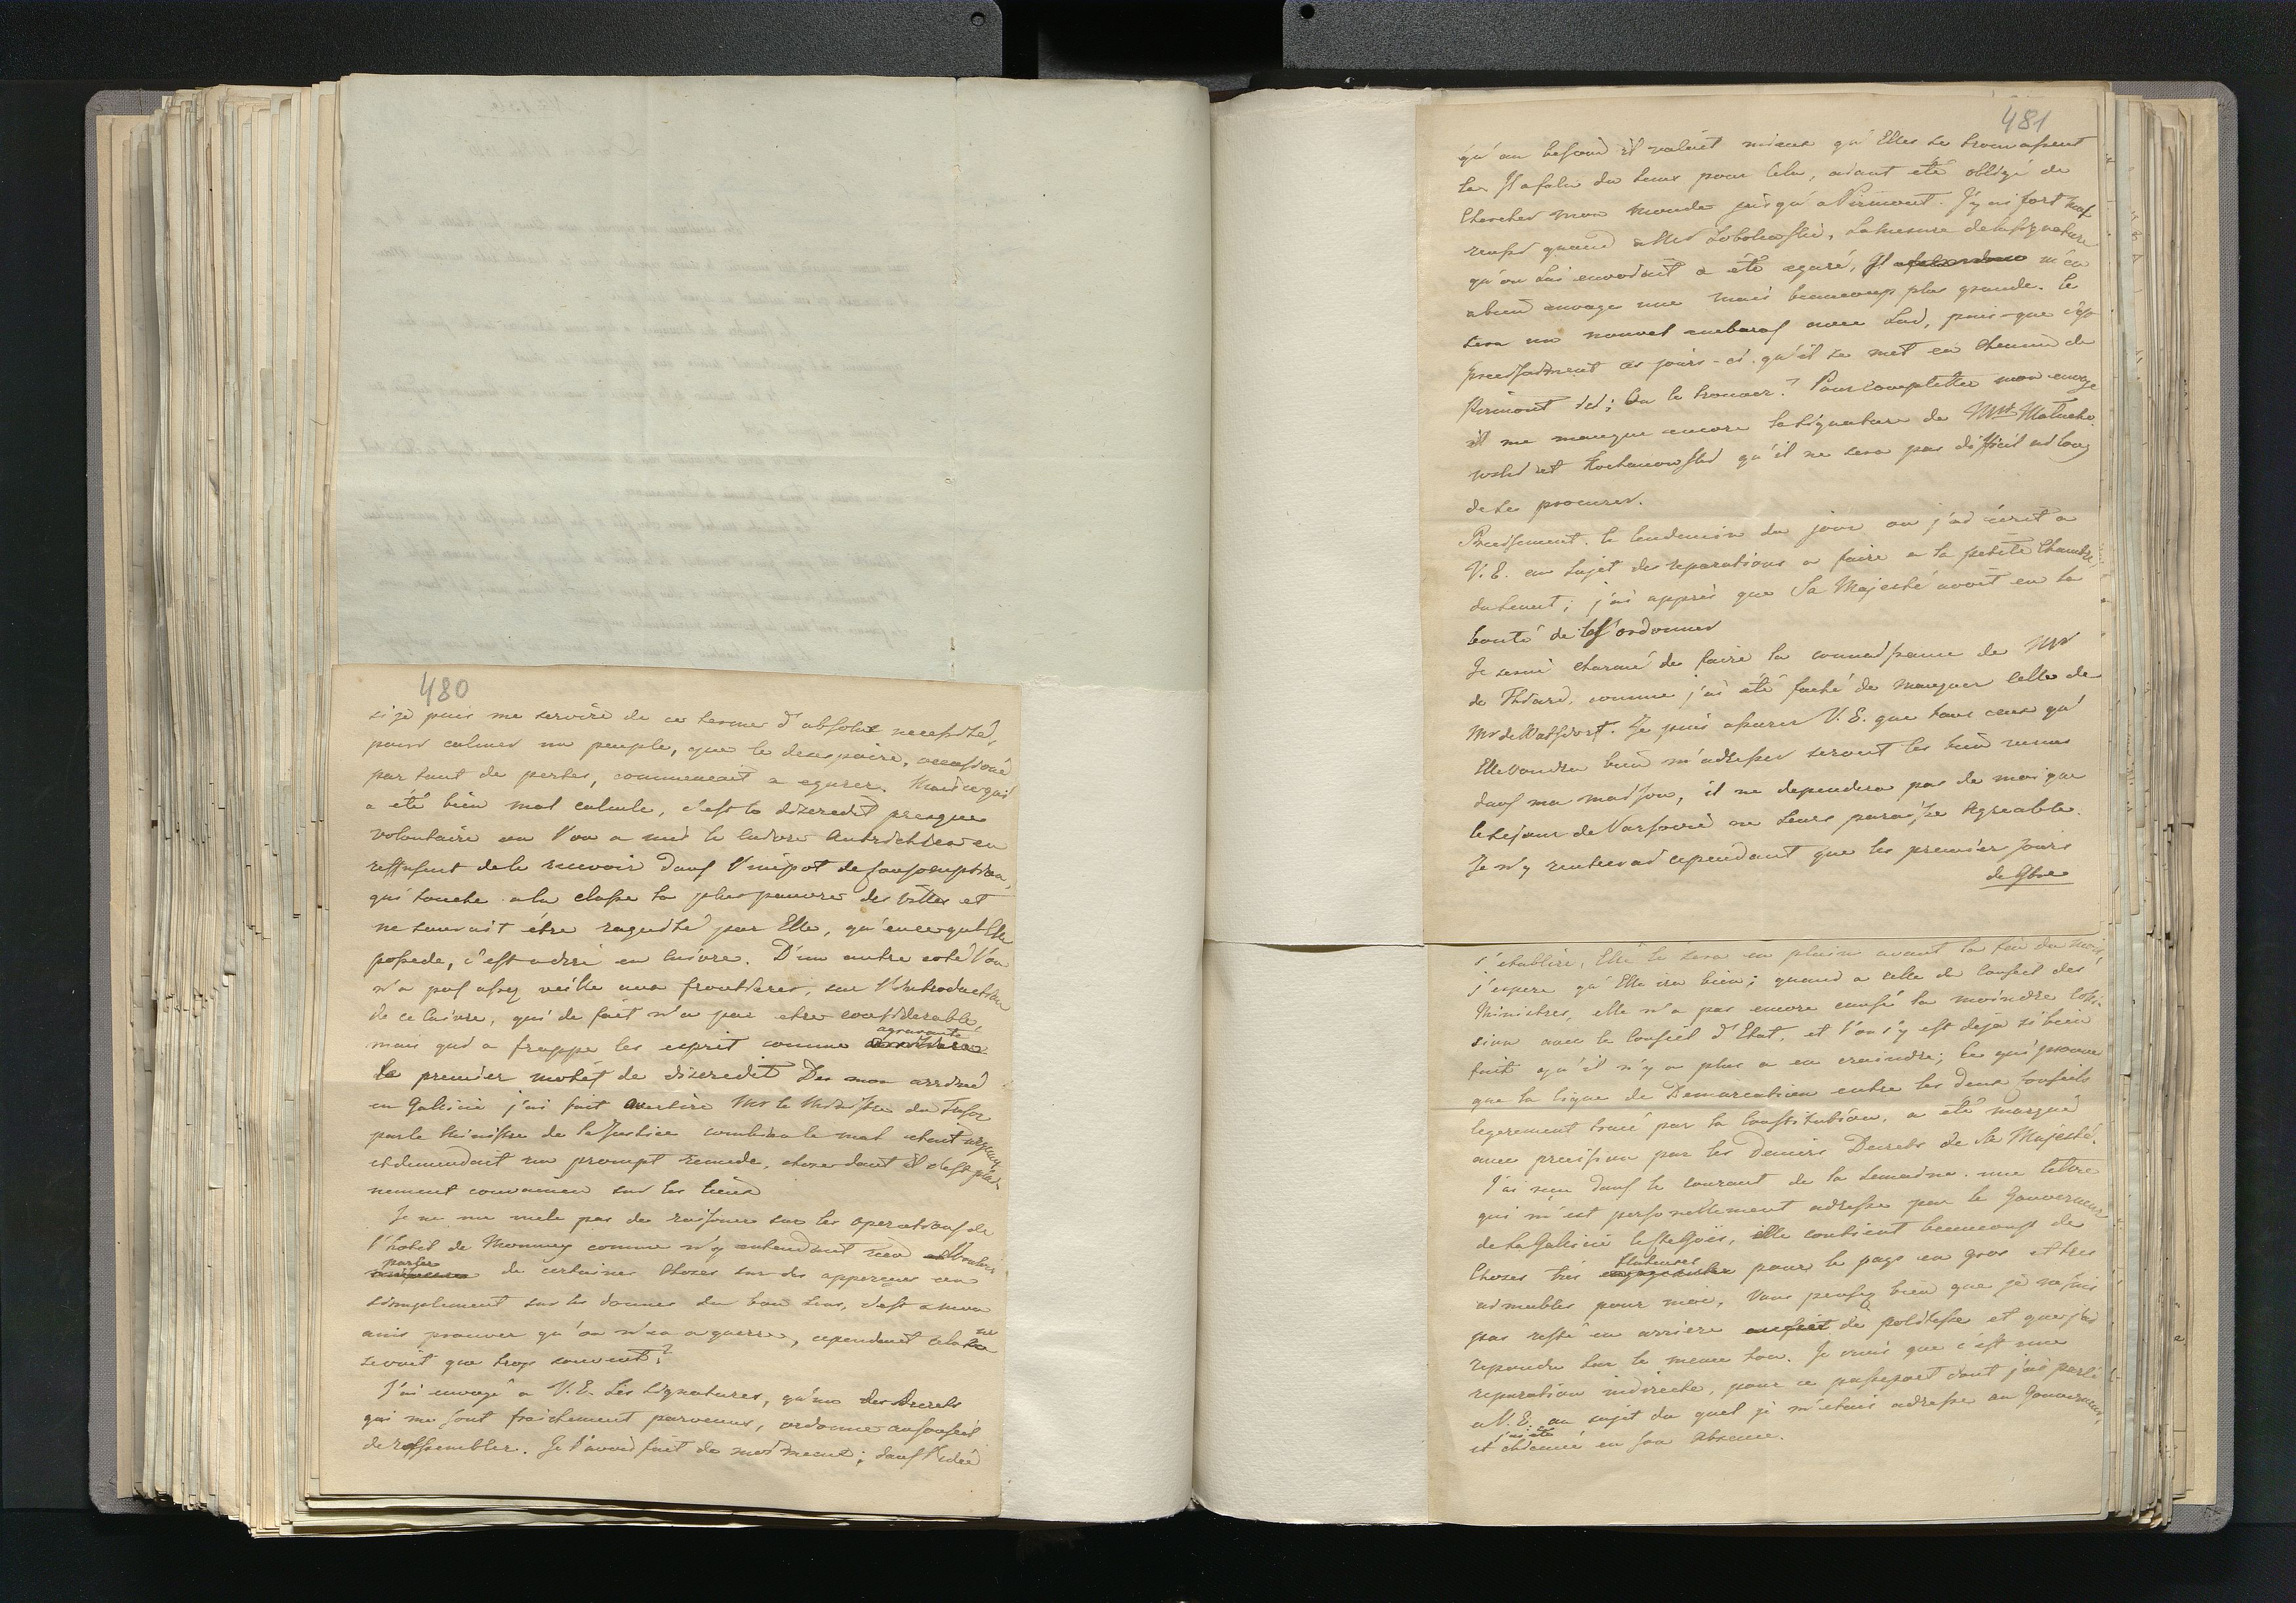 480
si je puis me servire de ce terme d'absolue necessité,
pour calmer un peuple, que le desespoire, occasioné
par tant de pertes, commencait a egarer. Mais ce qui
a été bien mal calculé, c'est le discredit presque
volontaire ou l'on a mis le cuivre Autrichien en
reffusent de le recevoir dans l'impot de Consomption,
qui touche a la classe la plus pauvre des villes et
ne sauroit étre raquitté par Elle, qu'en ce qu'Elle
possede, c'est a dire en cuivre. D'un autre coté l'on
n'a pas assez veillé aux frontieres, sur l'introduction
de ce cuivre, qui de fait n'a pu etre considerable,
agravante
mais qui a frappé les esprit comme
le premier motif de discredit Des mon arrivé
en Galicie j'ai fait avertire Mr le Ministre du Tresor
par le Ministre de la Justice combien le mal etait urgent
et demendait un prompt remede, chose dont il s'est plei-
nement convaincu sur les lieux
Je ne me mele pas de raisoner sur les operations de
l'hotel de Monnay comme n'y entendant rien vouloir
parler
de certaines choses sur des apperçues ou
simplement sur les données du bon sens, c'est a mon
avis prouver qu'on n'en a guerre, cependant cela ne
se voit que trop souvent?
J'ai envoyé a V. E. Les signatures, qu'un des Decrets
qui me sont fraichement parvenus, ordonne au Conseil
de rassembler. Je l'avois fait de moi meme; dans l'idée
481
qu'au besoin il valoit mieux qu'Elles se trouvassent
la. Il a falu du tems pour cela, aiant été obligé de
chercher mon monde jusqu'a Pirmont. J'y ai fort mal
reussi quand a Mr Sobolewski, la mesure de la signature
qu'on lui envoioit a été egaré, Il m'en
a bien envoyé une mais beaucoup plus grande. Ce
sera un nouvel embaras avec Lui, puis-que c'est
precisement ces jours-ci qu'il se met en chemin de
Pirmont ici; Ou le trouver? Pour completter mon envoye
il me manque encore la signature de Mrs Matucho.
wski et Kochanowski qu'il ne sera pas difficil ni long
de se procurer.
Precisement le lendemin du jour ou j'ai ecrit a
V. E. au sujet des reparations a faire a la petite Chambre
du Senat; j'ai appris que Sa Majesté avoit eu la
bonté de les ordonner
Je serai charmé de faire la connaissance de Mr
de Thiard, comme j'ai été faché de manquer celle de
Mr de Watsdorf. Je puis assurer V. E. que tous ceux qu'
Elle voudra bien m'adresser seront les bien venus
dans ma maison, il ne dependera pas de moi que
le sejour de Varsovie ne leurs paraisse Agreable.
Je n'y rentrerai cependant que les premier jours
de 9bre
s'etablire, Elle le sera en plein avant la fin du mois,
j'espere qu'Elle ira bien; quand a celle du Conseil des
Ministres, elle n'a pas encore causé la moindre colli-
sion avec le Conseil d'Etat, et l'on s'y est deja si bien
fait qu'il n'y a plus a en craindre; Ce qui prouve
que la ligne de Demarcation entre les deux Conseils
legerement tracé par la Constitution, a été marqué
avec precision par les derniers Decrets de Sa Majesté.
J'ai reçu dans le courant de la semaine une lettre
qui m'est personellement adressé par le Gouverneur
de la Galicie elle contient beaucoup de
flateuses
choses trés pour le pays en gros et tres
aimables pour moi, Vous pensez bien que je ne suis
pas resté en arriere de politesse et que j'ai
repondu sur le meme ton. Je crois que c'est une
reparation indirecte, pour ce passeport dont j'ai parlé
a V. E. au sujet du quel je m'etais adressé au Gouverneur,
j'ai été
et chicané en son Absence.